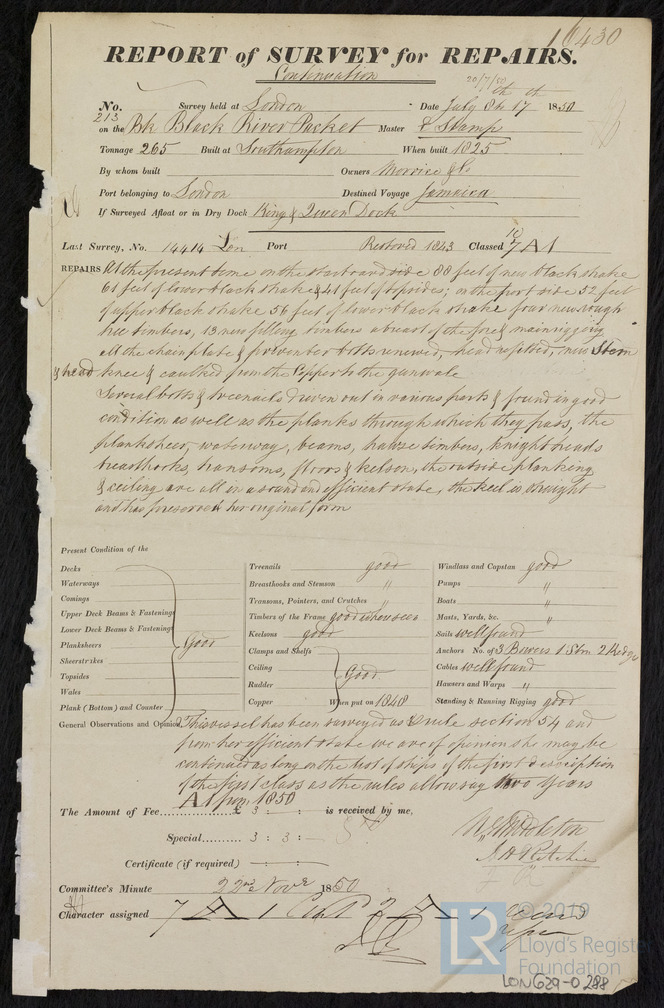 16430
REPORT of SURVEY for REPAIRS.
Continuation
20/7/50
No. 213 Survey held at London Date July 17th 1850
on the Bk Black River Packet Master Stamp
Tonnage 265 Built at Southampton When built 1825
By whom built Owners Morrice & Co
Port belonging to London Destined Voyage Jamaica
If Surveyed Afloat or in Dry Dock King & Queen Dock
Last Survey, No. 14414 Lon Port Restored 1843 Classed 10/7 A 1
REPAIRS At the present time on the starboard side 88 feet of new black strake
61 feet of lower black strake & 41 feet of topsides; on the port side 52 feet
of upper black strake 56 feet of lower black strake four new rough
tree timbers, 13 new filling timbers abreast of the fore & main rigging
all the chain plate & preventer bolts renewed, head refitted, new Stem
& head knee & caulked from the Copper to the gunwale
Several bolts & treenails driven out in various parts & found in good
condition as well as the planks through which they pass, the
plansheer, waterway, beams, hawze timbers, knightheads
breasthooks, transoms, floors & kelson, the outside planking
& ceiling are all in a sound and efficient state, the keel is straight
and has preserved her original form
Present Condition of the
Decks
Waterways
Comings
Upper Deck Beams & Fastenings
Lower Deck Beams & Fastenings
Planksheers Good
Sheerstrakes
Topsides
Wales
Plank (Bottom) and Counter
Treenails good
Breasthooks and Stemson "
Transoms, Pointers, and Crutches "
Timbers of the Frame good where seen
Keelsons good
Clamps and Shelfs
Ceiling Good
Rudder
Copper When put on 1848
Windlass and Capstan good
Pumps "
Boats "
Masts, Yards, &c. "
Sails well found
Anchors No. of 3 Bowers 1 Stm 2 Kedge
Cables well found
Hawsers and Warps "
Standing & Running Rigging good
General Observations and Opinion This vessel has been surveyed as rule section 54 and
from her efficient state we are of opinion she may be
continued as long on the list of ships of the first description
of the first class as the rules allow say two years
A1 from 1850
The Amount of Fee £ 3 : : is received by me,
Special 3 : 3 :
Certificate (if required) : :
W Middleton
J H Ritchie
Committee's Minute 22nd Novr 1850
Character assigned 7 A 1 Contd 2 A 1
© 2019
LR Lloyd's Register
Foundation
LON629-0288